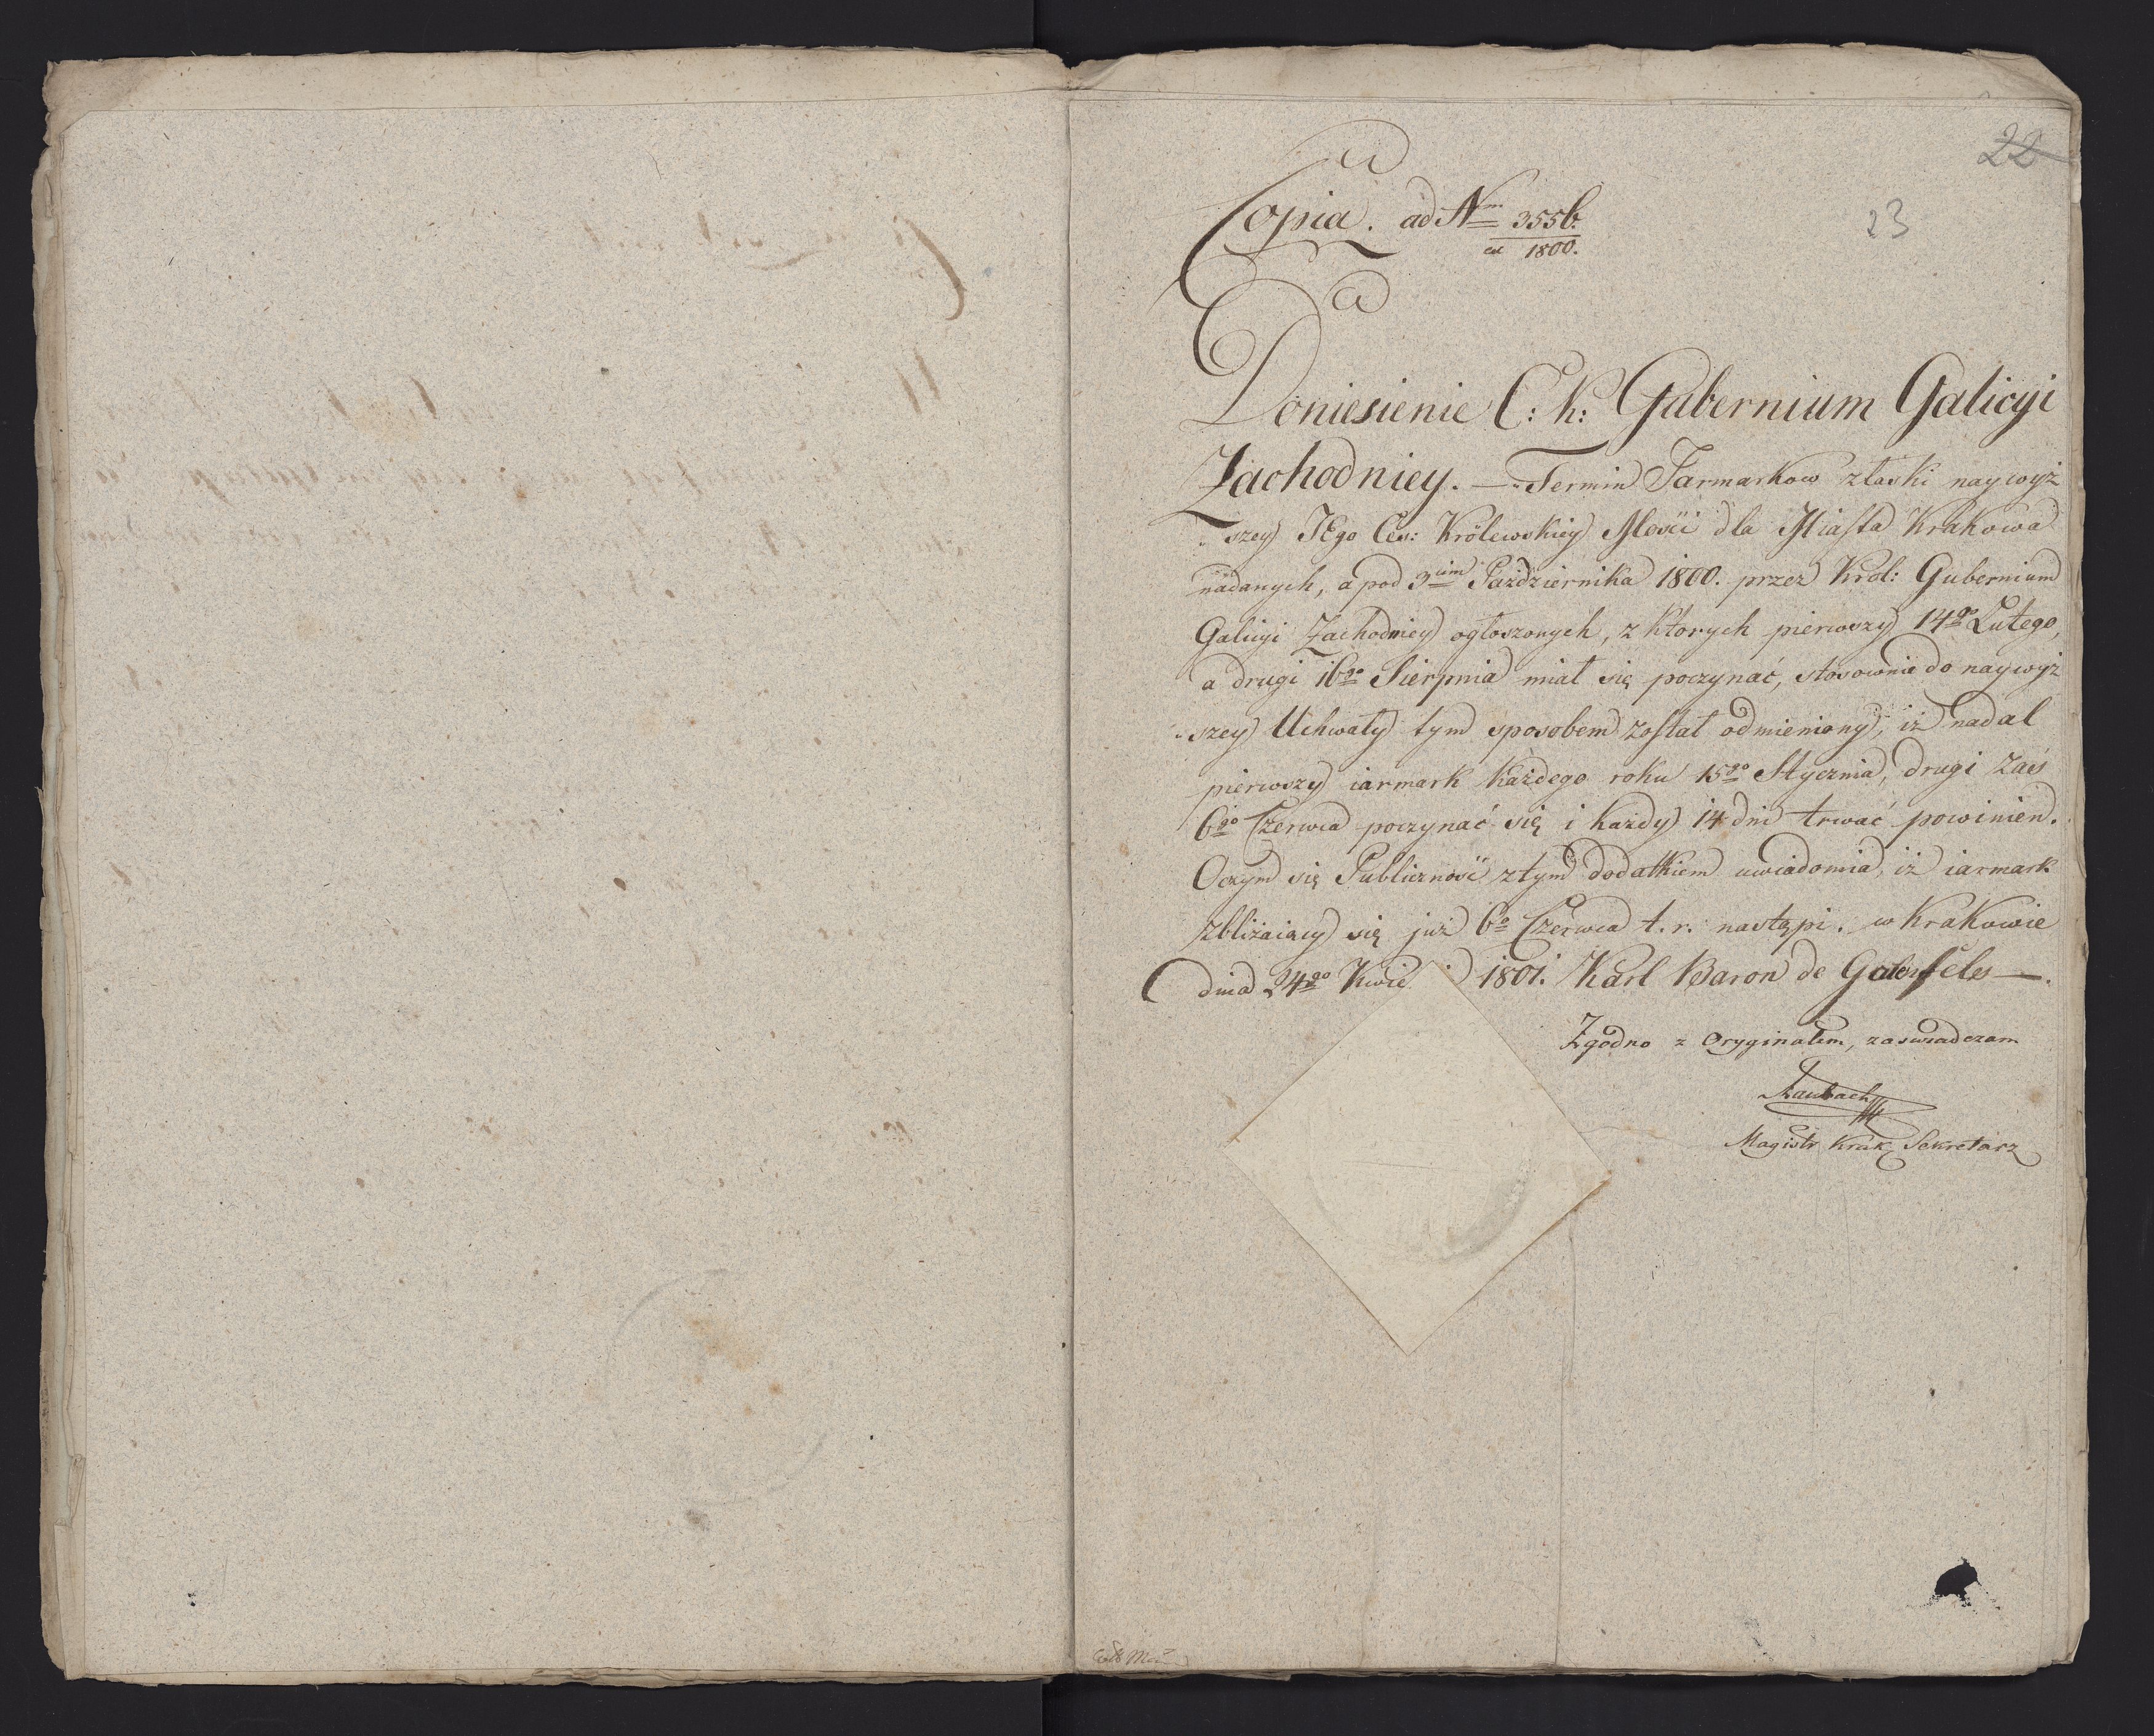 22
23
Copia. ad Nrm 3556.
ex 1800.
Doniesienie C: k: Gubernium Galicyi
Zachodniey. — Termin Jarmarkow złaski naywyż
szey JEgo Ces: Królewskiey Mości dla Miasta Krakowa
nadanych, a pod 3cim Października 1800. przez Król: Gubernium
Galicyi Zachodniey ogłoszonych, z ktorych pierwszy 14go Lutego,
a drugi 16go Sierpnia miał się poczynać, stosownie do naywyż
szey Uchwały tym sposobem został odmieniony, iż nadal
pierwszy iarmark każdego roku 15go Stycznia, drugi zaś
6go Czerwca poczynać się i każdy 14 dni trwać powinien.
Oczym się Publiczność ztym dodatkiem uwiadomia, iż iarmark
zbliżaiący się już 6o Czerwca t. r. nastąpi. w Krakowie
dnia 24go Kwie 1801. Karl Baron de —.
Zgodno z Oryginałem, zaswiadczam
Laubach
Magistr Krak Sekretarz